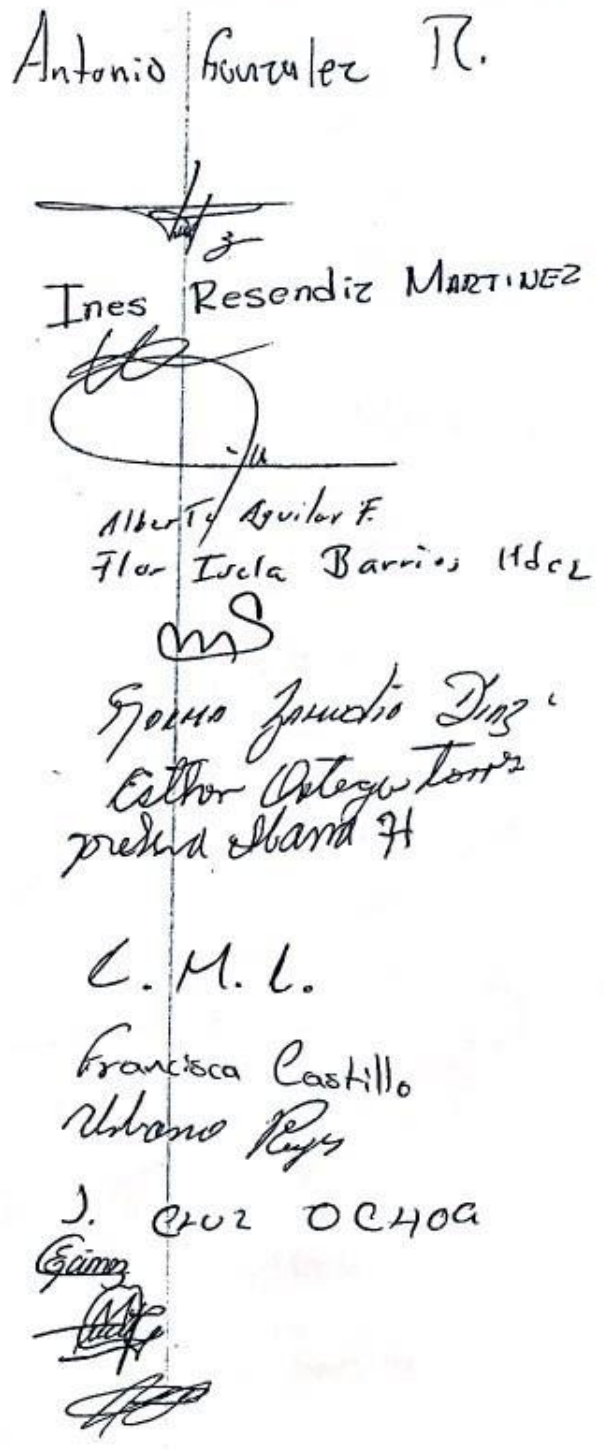 Antonio Gonzalez R.
Ines Resendiz MARTINEZ
Alberto Aguilar F.
Flor Isela Barrios Hdez
Zamudio Diaz
Esther Ortega Torres
Ibarra H
C. M. L.
Francisca Castillo
Urbano Reyes
J. CRUZ OCHOA
Gámez